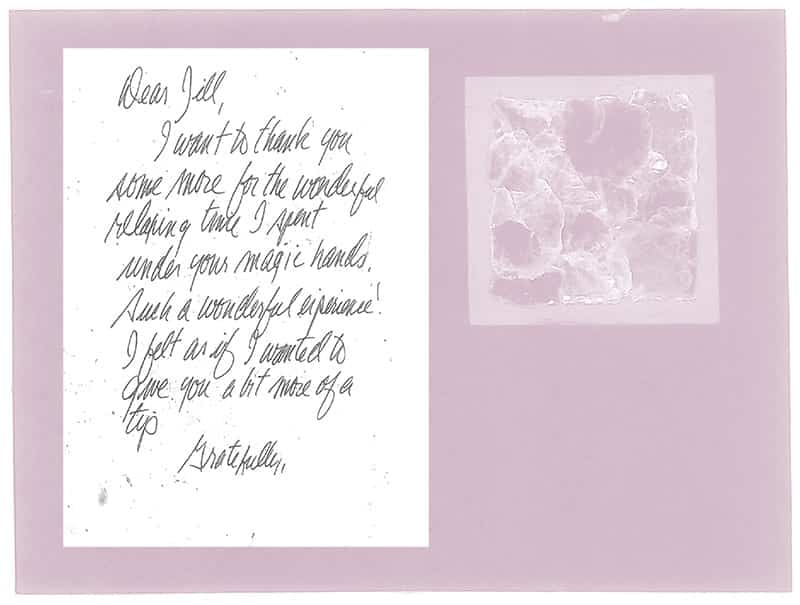 Dear Jill,
I want to thank you
some more for the wonderful
relaxing time I spent
under your magic hands.
Such a wonderful experience!
I felt as if I wanted to
give you a bit more of a
tip
Gratefully,